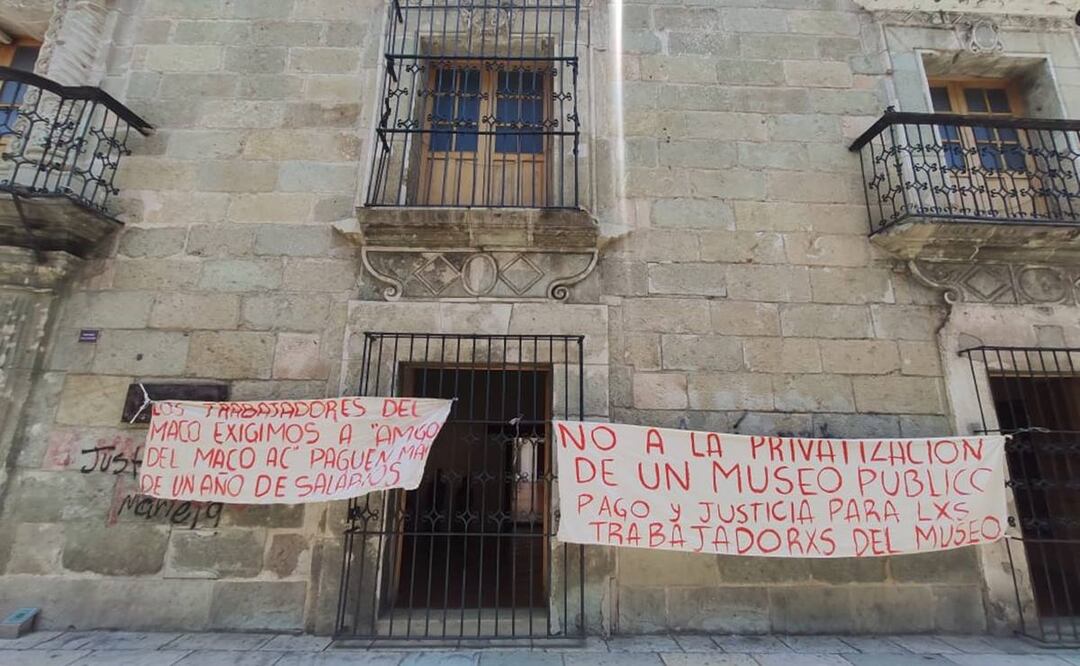 LOS TRABAJADORES DEL
MACO EXIGIMOS A "AMGO
DEL MACO AC" PAGUEN MA
DE UN AÑO DE SALARIOS
NO A LA PRIVATIZACION
DE UN MUSEO PUBLICO
PAGO Y JUSTICIA PARA LXS
TRABAJADORXS DEL MUSEO
Just
Mariela